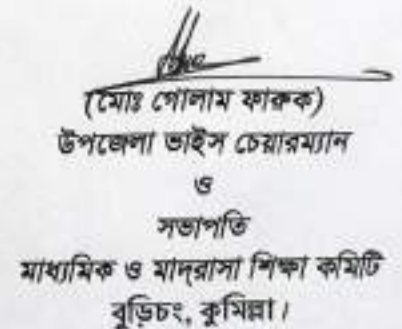 (মোঃ গোলাম ফারুক)
উপজেলা ভাইস চেয়ারম্যান
ও
সভাপতি
মাধ্যমিক ও মাদ্‌রাসা শিক্ষা কমিটি
বুড়িচং, কুমিল্লা।